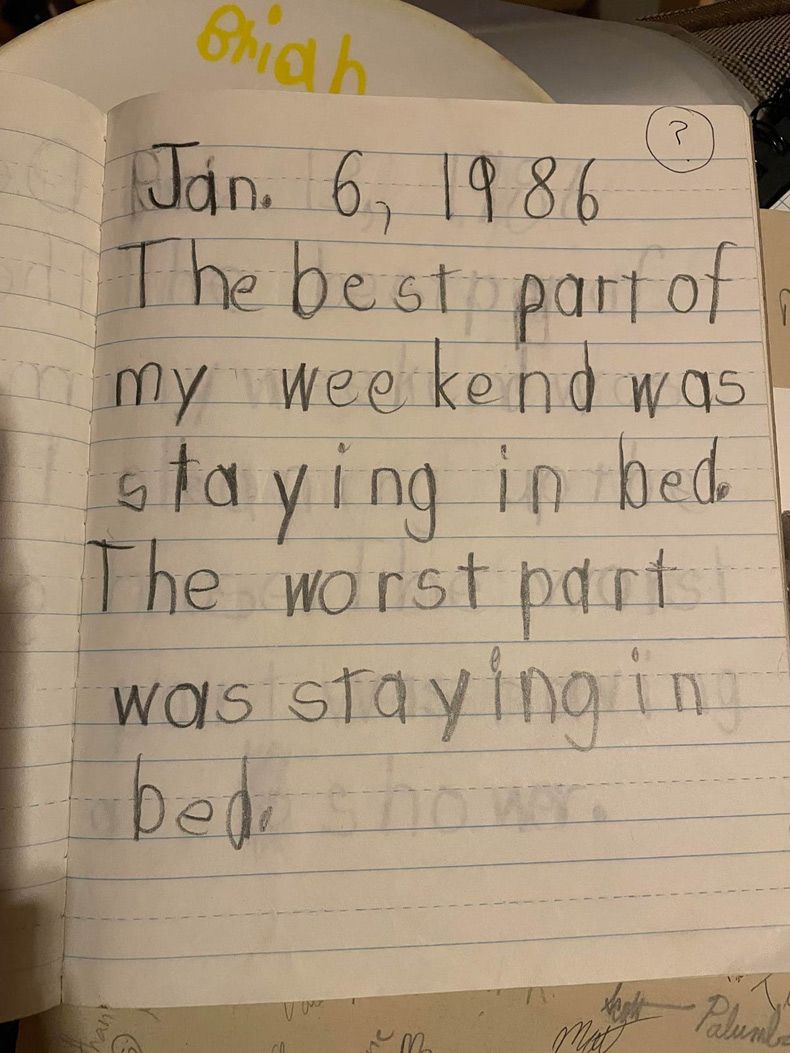 Brian
?
Jan. 6, 1986
The best part of
my weekend was
staying in bed.
The worst part
was staying in
bed.
shower.
Scott
Matt
Palumb